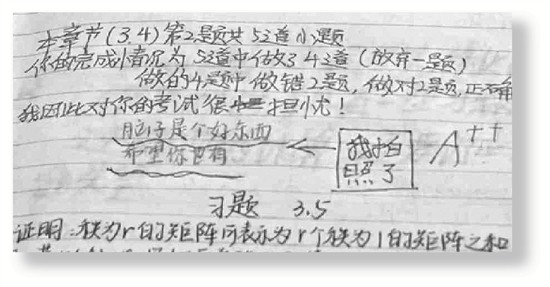 本章节(3.4)第2题共5道小题
你的完成情况为 5道中做了4道(放弃一题)
做的4题中 做错2题,做对2题,正确
我因此对你的考试很担忧!
脑子是个好东西
希望你也有
我拍
照了
A++
习题 3.5
证明:秩为r的矩阵可表示为r个秩为1的矩阵之和